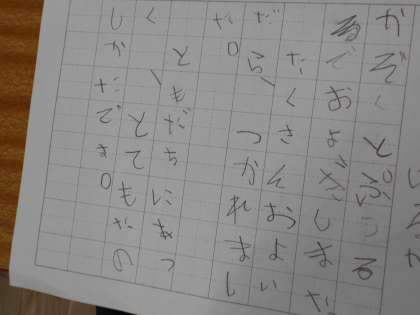 かぞくとぷうる
るでおよぎしまた
たくさんおよい
だら、つかれまし
た。
ともだちにあっ
て、とてもたの
しかたです。